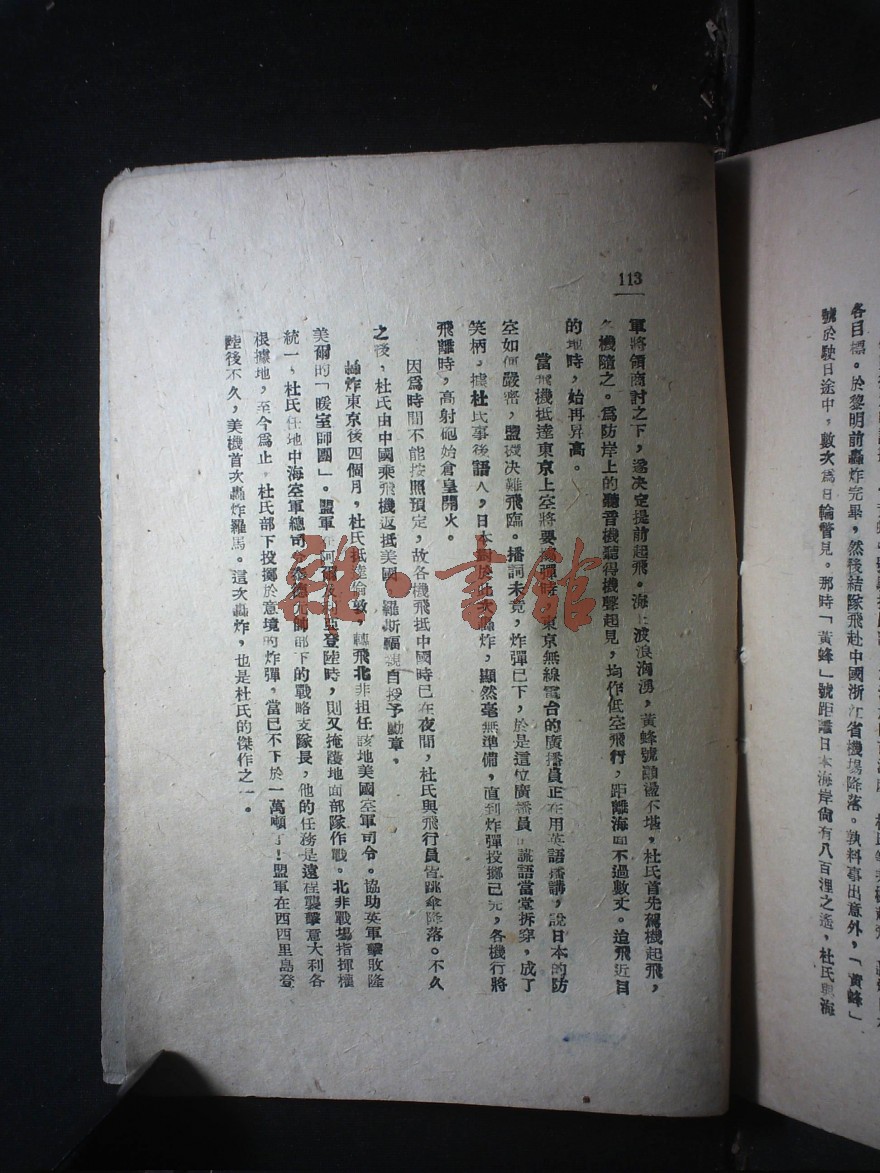 各目標。於黎明前轟炸完畢，然後結隊飛赴中國浙江省機場降落。孰料事出意外，「黃蜂」
號於駛日途中，數次爲日輪瞥見。那時「黃蜂」號距離日本海岸尙有八百浬之遙，杜氏與海
113
軍將領商討之下，遂决定提前起飛。海上波浪洶湧，黃蜂號顚盪不堪，杜氏首先駕機起飛，
各機隨之。爲防岸上的聽音機聽得機聲起見，均作低空飛行，距離海面不過數丈。迨飛近目
的地時，始再昇高。
當飛機抵達東京上空將要 彈時，東京無線電台的廣播員正在用英語播講，說日本的防
空如何嚴密，盟機决難飛臨。播詞未竟，炸彈已下，於是這位廣播員 謊語當堂拆穿，成了
笑柄，據杜氏事後語人，日本對於此次轟炸，顯然毫無準備，直到炸彈投擲已完，各機行將
飛離時，高射砲始倉皇開火。
因爲時間不能按照預定，故各機飛抵中國時已在夜間，杜氏與飛行員皆跳傘降落。不久
之後，杜氏由中國乘飛機返抵美國，羅斯福親自授予勳章。
轟炸東京後四個月，杜氏抵達倫敦，轉飛北非担任該地美國空軍司令。協助英軍擊敗隆
美爾的「暖室師團」。盟軍在阿爾及利亞登陸時，則又掩護地面部隊作戰。北非戰場指揮權
統一，杜氏任地中海空軍總司令 德 元帥部下的戰略支隊長，他的任務是遠程襲擊意大利各
根據地，至今爲止，杜氏部下投擲於意境的炸彈，當已不下於一萬噸了！盟軍在西西里島登
陸後不久，美機首次轟炸羅馬。這次轟炸，也是杜氏的傑作之一。
雜·書館